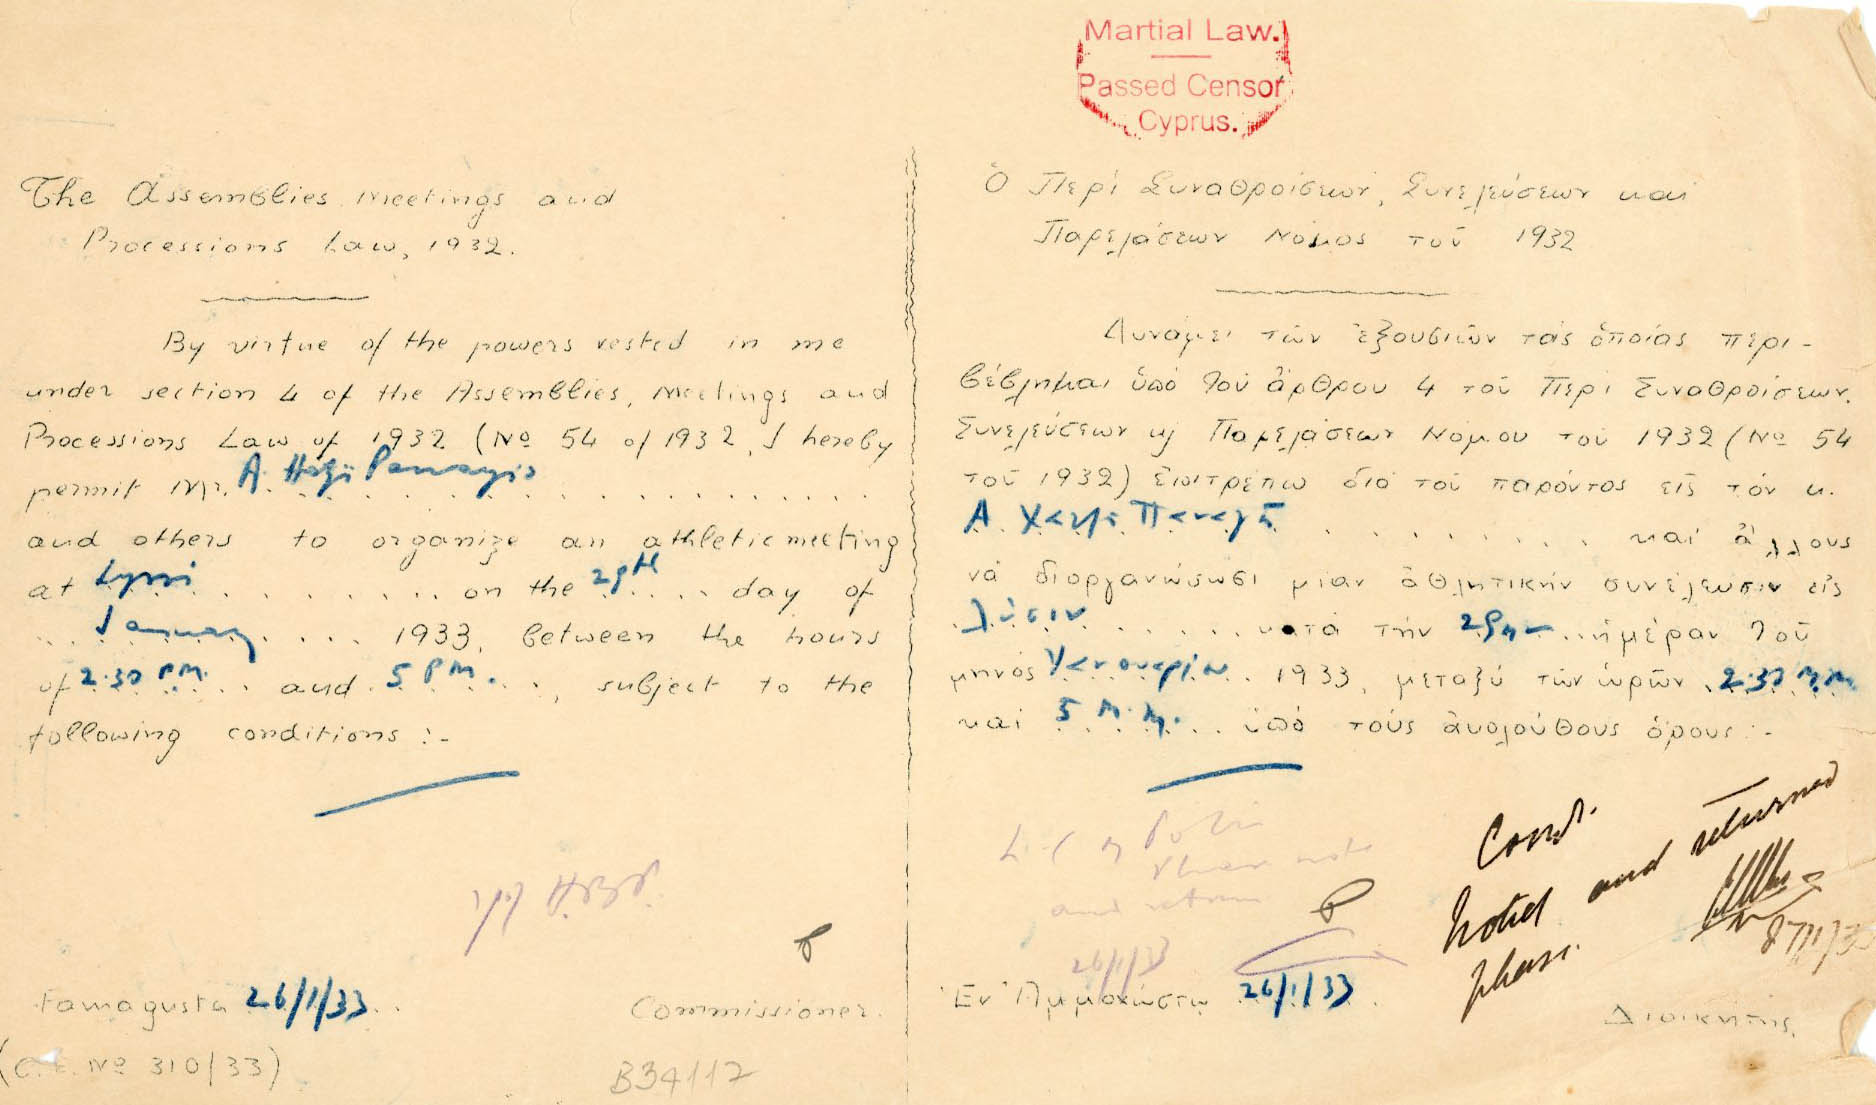 Martial Law.
Passed Censor
Cyprus.
The Assemblies Meetings and
Processions Law, 1932.
By virtue of the powers vested in me
under section 4 of the Assemblies, Meetings and
Processions Law of 1932 (No 54 of 1932, I hereby
permit Mr. A. Hagi Panayio
and others to organize an athletic meeting
at Lyssi on the 29th day of
January 1933, between the hours
of 2.30 P.M. and 5 P.M., subject to the
following conditions :-
Famagusta 26/1/33
Commissioner.
(C.E. No 310/33)
B34117
Ὁ Περί Συναθροίσεων, Συνελεύσεων και
Παρελάσεων Νόμος τοῦ 1932
Δυνάμει τῶν ἐξουσιῶν τάς ὁποίας περι-
βέβλημαι ὑπό τοῦ ἄρθρου 4 τοῦ Περί Συναθροίσεων,
Συνελεύσεων κ͵ Παρελάσεων Νόμου τοῦ 1932 (No 54
τοῦ 1932) ἐπιτρέπω διά τοῦ παρόντος εἰς τόν κ.
Α. Χατζῆ Παναγῆ καί ἄλλους
νά διοργανώσωσι μίαν ἀθλητικήν συνέλευσιν εἰς
Λύσιν κατά τήν 29ην ἡμέραν τοῦ
μηνός Ιανουαρίου 1933, μεταξύ τῶν ὡρῶν 2.30 μ.μ.
καί 5 μ.μ. ὑπό τούς ἀκολούθους ὅρους :-
L. C of Police
Please note
and return
26/1/33
Ἐν Ἀμμοχώστῳ 26/1/33
Διοικητής.
noted and returned
please.